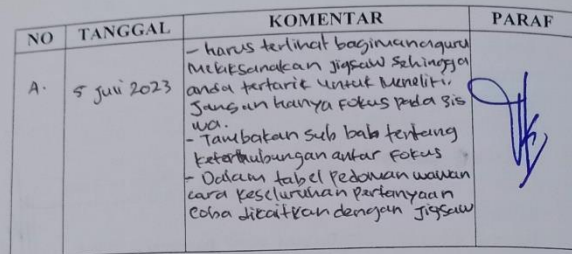 NO TANGGAL KOMENTAR PARAF
- harus terlihat bagimana guru
melaksanakan jigsaw sehingga
A. 5 Juli 2023 anda tertarik untuk meneliti.
Jangan hanya fokus pada sis
wa.
- Tambakan sub bab tentang
keterhubungan antar fokus
- Dalam tabel pedoman wawan
cara keseluruhan pertanyaan
coba dikaitkan dengan Jigsaw